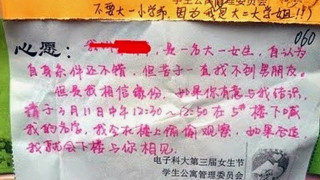 学生公寓管理委员会
不要大一小学弟，因为我是大二大学姐!!!
060
心愿：
，是一名大一女生，自认为
自身条件还不错，但苦于一直找不到男朋友。
但是我相信缘份，如果你有意与我结识，
请于3月11日中午12:30~12:50在5#楼下喊
我的名字，我会在楼上偷偷观察，如果合适
我就会下楼与你相见。
电子科大第三届女生节
学生公寓管理委员会